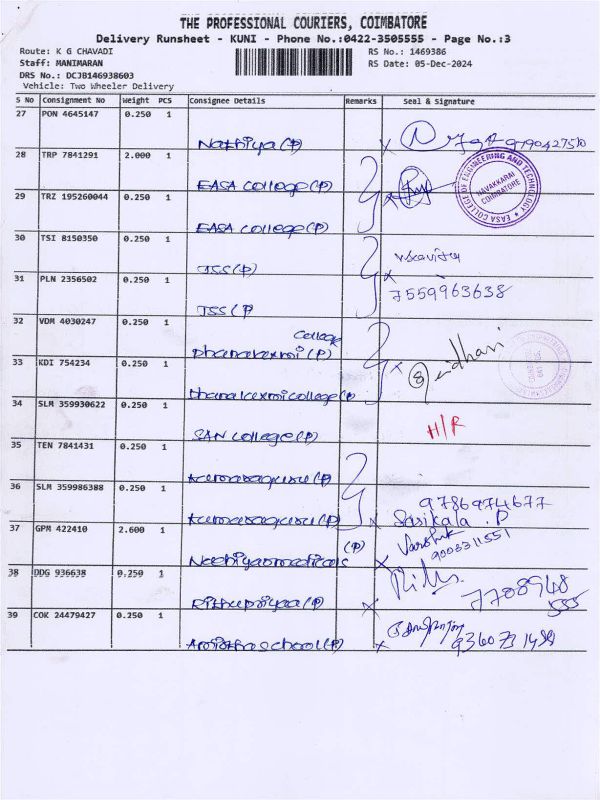 THE PROFESSIONAL COURIERS, COIMBATORE
Delivery Runsheet - KUNI - Phone No.:0422-3505555 - Page No.:3
Route: K G CHAVADI RS No.: 1469386
Staff: MANIMARAN RS Date: 05-Dec-2024
DRS No.: DCJB146938603
Vehicle: Two Wheeler Delivery
S No Consignment No Weight PCS Consignee Details Remarks Seal & Signature
27 PON 4645147 0.250 1
Nathiya (P)
28 TRP 7841291 2.000 1
EASA college (P)
EASA COLLEGE OF ENGINEERING AND TECHNOLOGY
NAVAKKARAI
COIMBATORE
29 TRZ 195260044 0.250 1
EASA college (P)
30 TSI 8150350 0.250 1
JSS (P)
31 PLN 2356502 0.250 1
7559963638
JSS (P
32 VDM 4030247 0.250 1
college
dhanalaxmi (P)
33 KDI 754234 0.250 1
dhanalaxmi college (P
34 SLM 359930622 0.250 1
H/R
SAN college (P)
35 TEN 7841431 0.250 1
kumaraguru (P)
36 SLM 359986388 0.250 1
9786974677
Sasikala . P
kumaraguru (P)
37 GPM 422410 2.600 1
(P)
9003311551
Nathiyas medicals
38 DDG 936638 0.250 1
7708948
555
Rithupriyaa (P)
39 COK 24479427 0.250 1
Amirtha school (P)